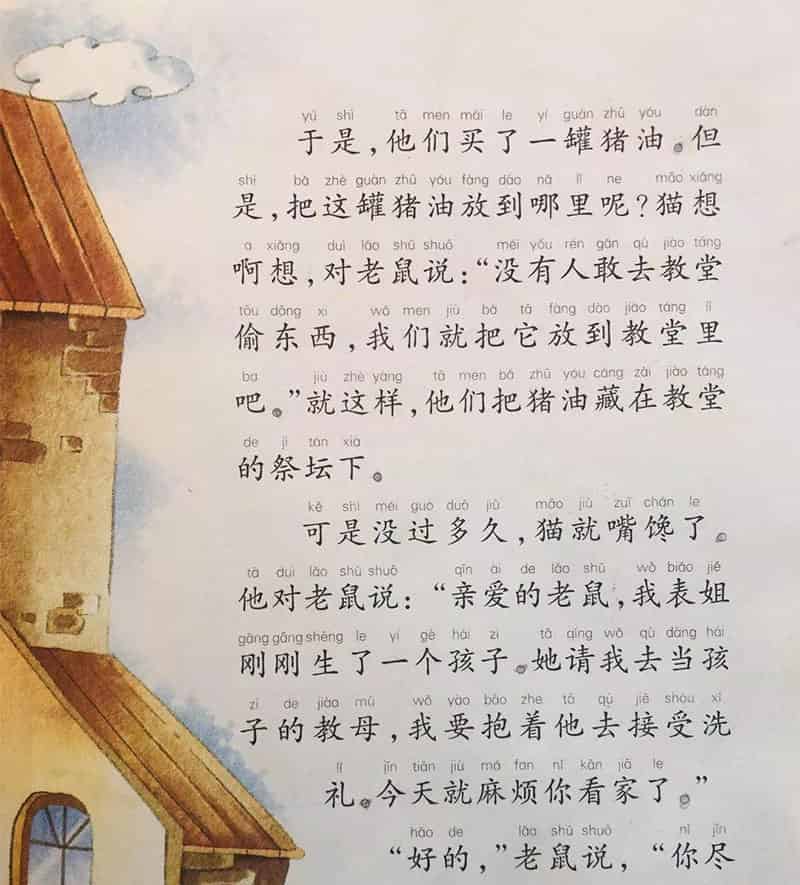 yú shì tā men mǎi le yí guàn zhū yóu dàn
于是，他们买了一罐猪油。但
shì bǎ zhè guàn zhū yóu fàng dào nǎ lǐ ne māo xiǎng
是，把这罐猪油放到哪里呢？猫想
a xiǎng duì lǎo shǔ shuō méi yǒu rén gǎn qù jiào táng
啊想，对老鼠说：“没有人敢去教堂
tōu dōng xi wǒ men jiù bǎ tā fàng dào jiào táng lǐ
偷东西，我们就把它放到教堂里
ba jiù zhè yàng tā men bǎ zhū yóu cáng zài jiào táng
吧。”就这样，他们把猪油藏在教堂
de jì tán xià
的祭坛下。
kě shì méi guò duō jiǔ māo jiù zuǐ chán le
可是没过多久，猫就嘴馋了。
tā duì lǎo shǔ shuō qīn ài de lǎo shǔ wǒ biǎo jiě
他对老鼠说：“亲爱的老鼠，我表姐
gāng gāng shēng le yí gè hái zi tā qǐng wǒ qù dāng hái
刚刚生了一个孩子。她请我去当孩
zi de jiào mǔ wǒ yào bào zhe tā qù jiē shòu xǐ
子的教母，我要抱着他去接受洗
lǐ jīn tiān jiù má fan nǐ kān jiā le
礼。今天就麻烦你看家了。”
hǎo de lǎo shǔ shuō nǐ jǐn
“好的，”老鼠说，“你尽